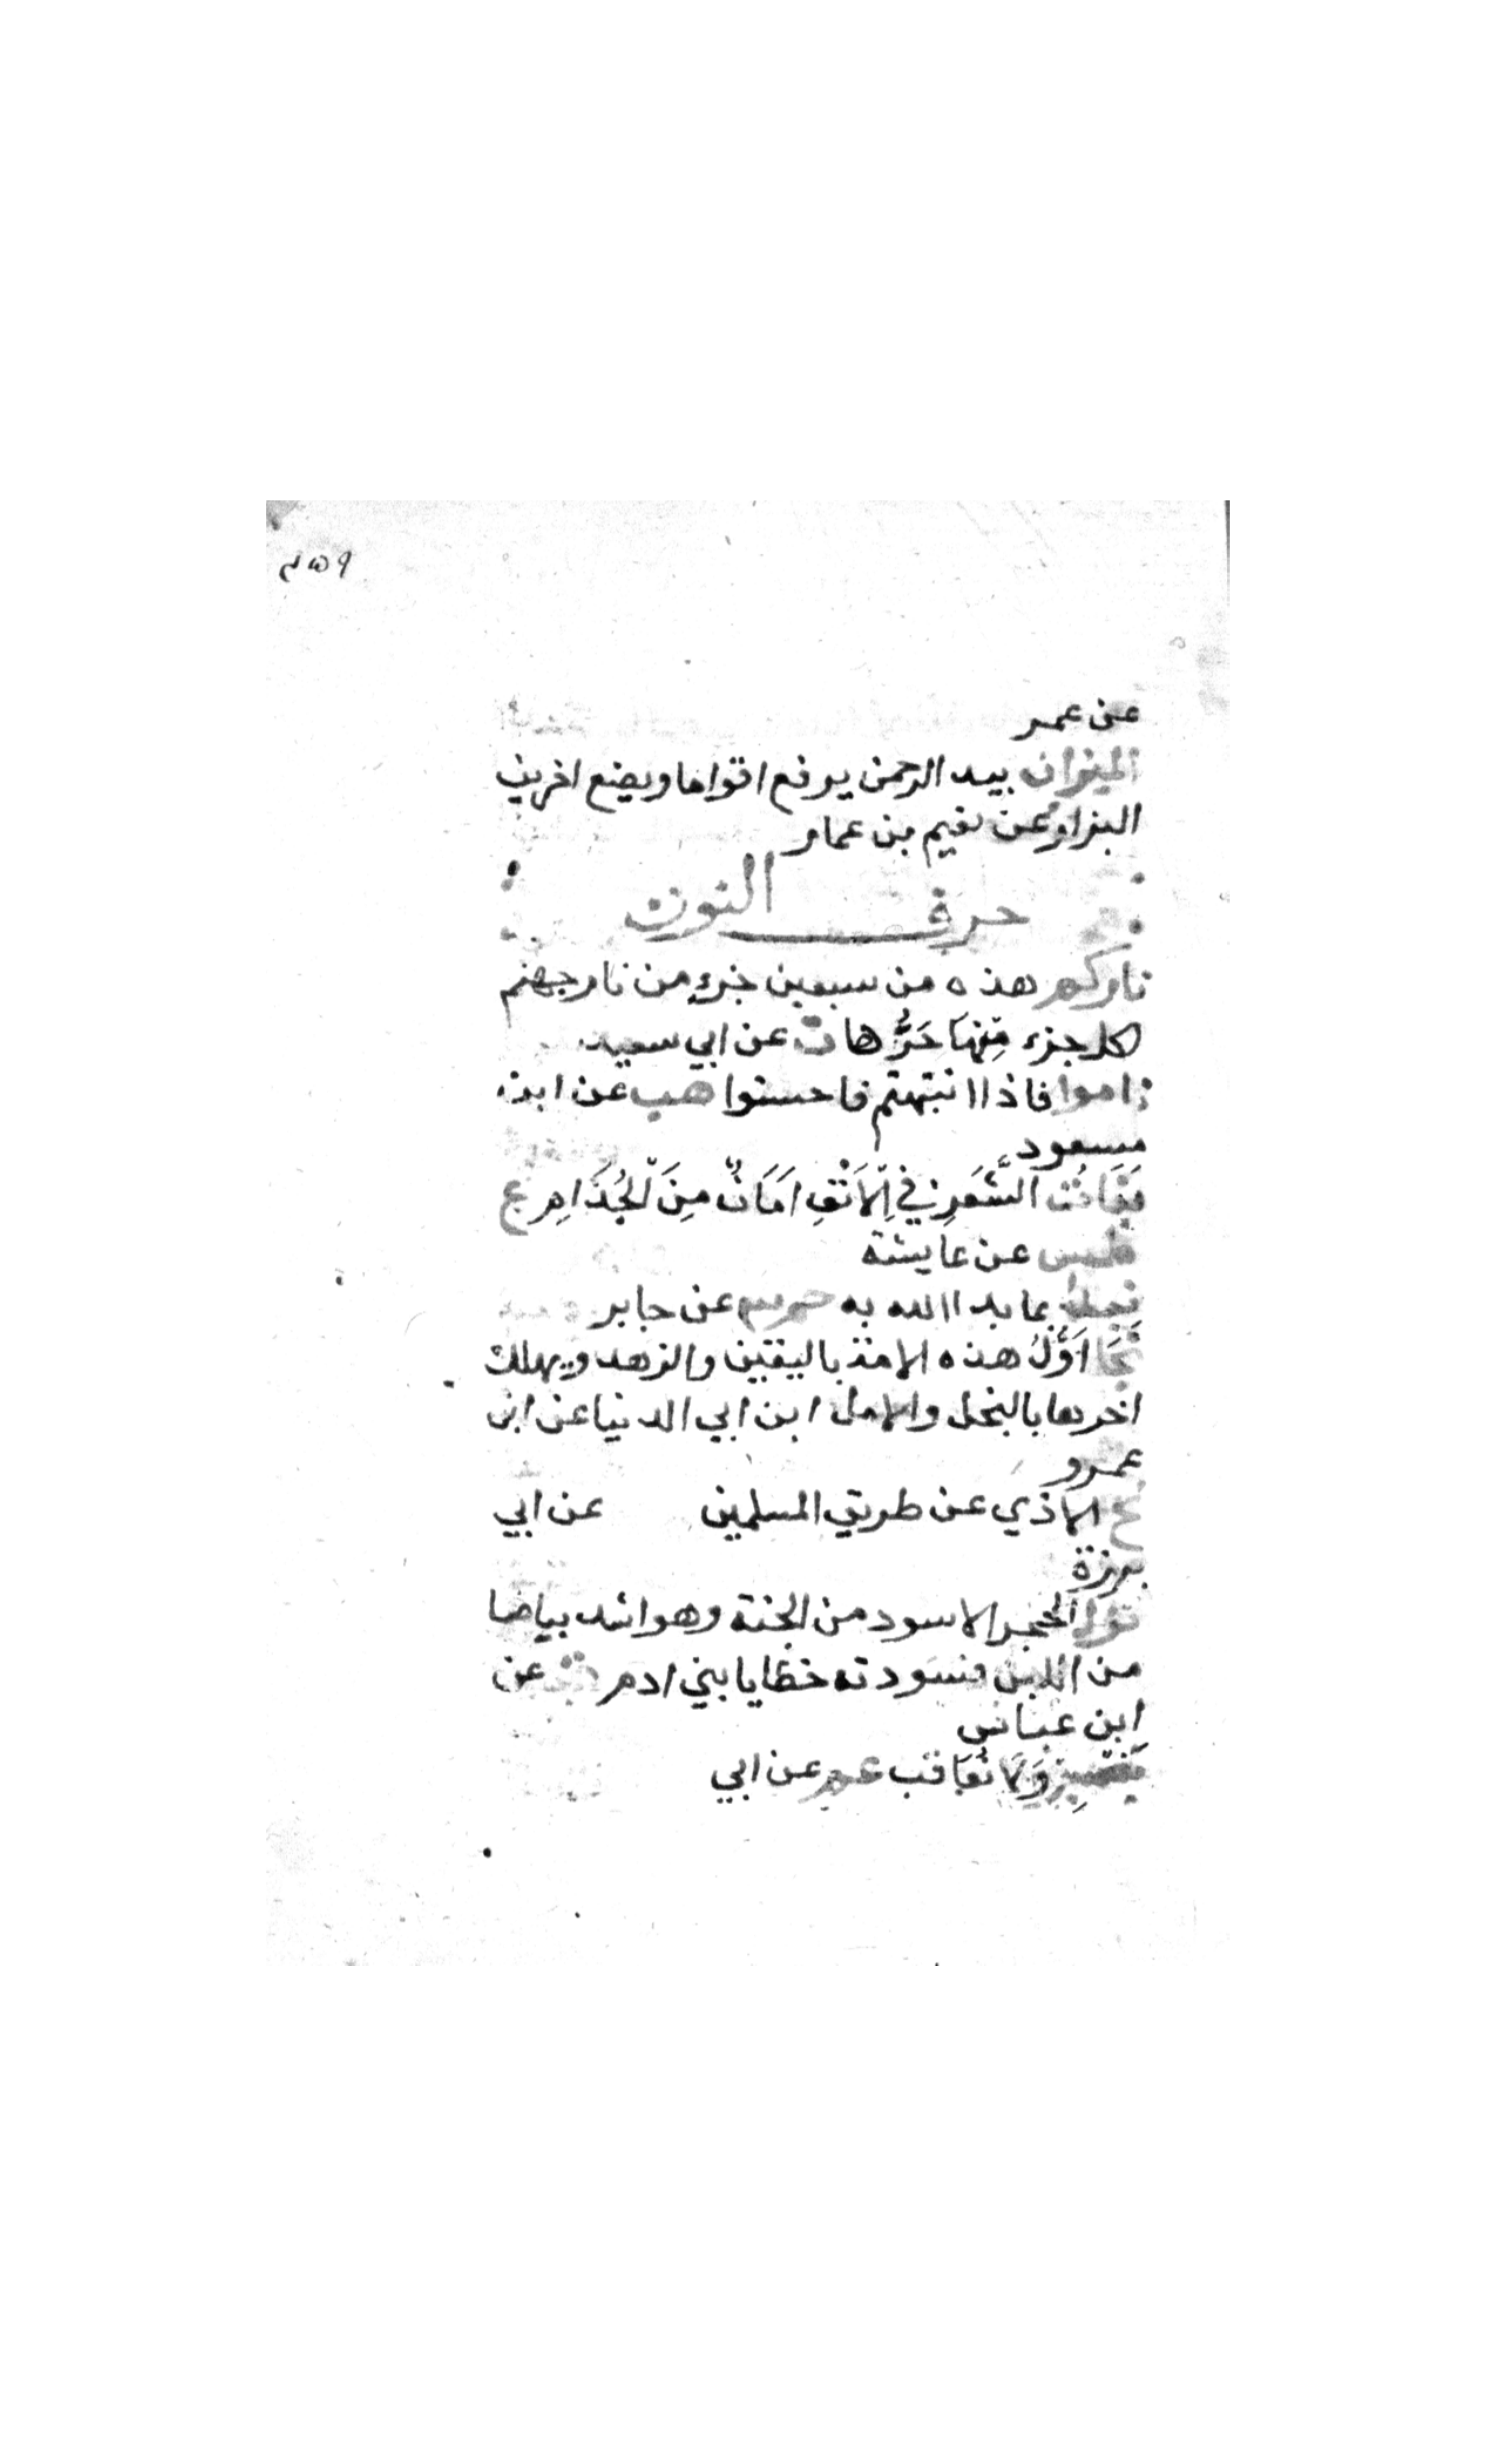 ٣٥٩
عن عمر
الميزان بيد الرحمن يرفع اقواما ويضع اخرين
البزار عن نعيم بن عمار
حرف النون
ناركم هذه من سبعين جزء من نار جهنم
لكل جزء مِنْهَا حَرُّها ت عن ابي سعيد
ناموا فاذا انتبهتم فاحسنوا هب عن ابن
مسعود
نَبَاتُ الشَّعَرِ فِي الْاَنْفِ اَمَانٌ مِنَ الْجُذَامِ ع
طس عن عايشة
نبدا بما بدا الله به حم عن جابر
نَجَا اَوَّلُ هذه الامة باليقين والزهد ويهلك
اخرها بالبخل والامل ابن ابي الدنيا عن ابن
عمرو
نح الاذي عن طريق المسلمين عن ابي
برزة
نزل الحجر الاسود من الجنة وهو اشد بياضا
من اللبن فسودته خطايا بني ادم ت عن
ابن عباس
نَصْبِرُ وَلَا نُعَاقب عم عن ابي